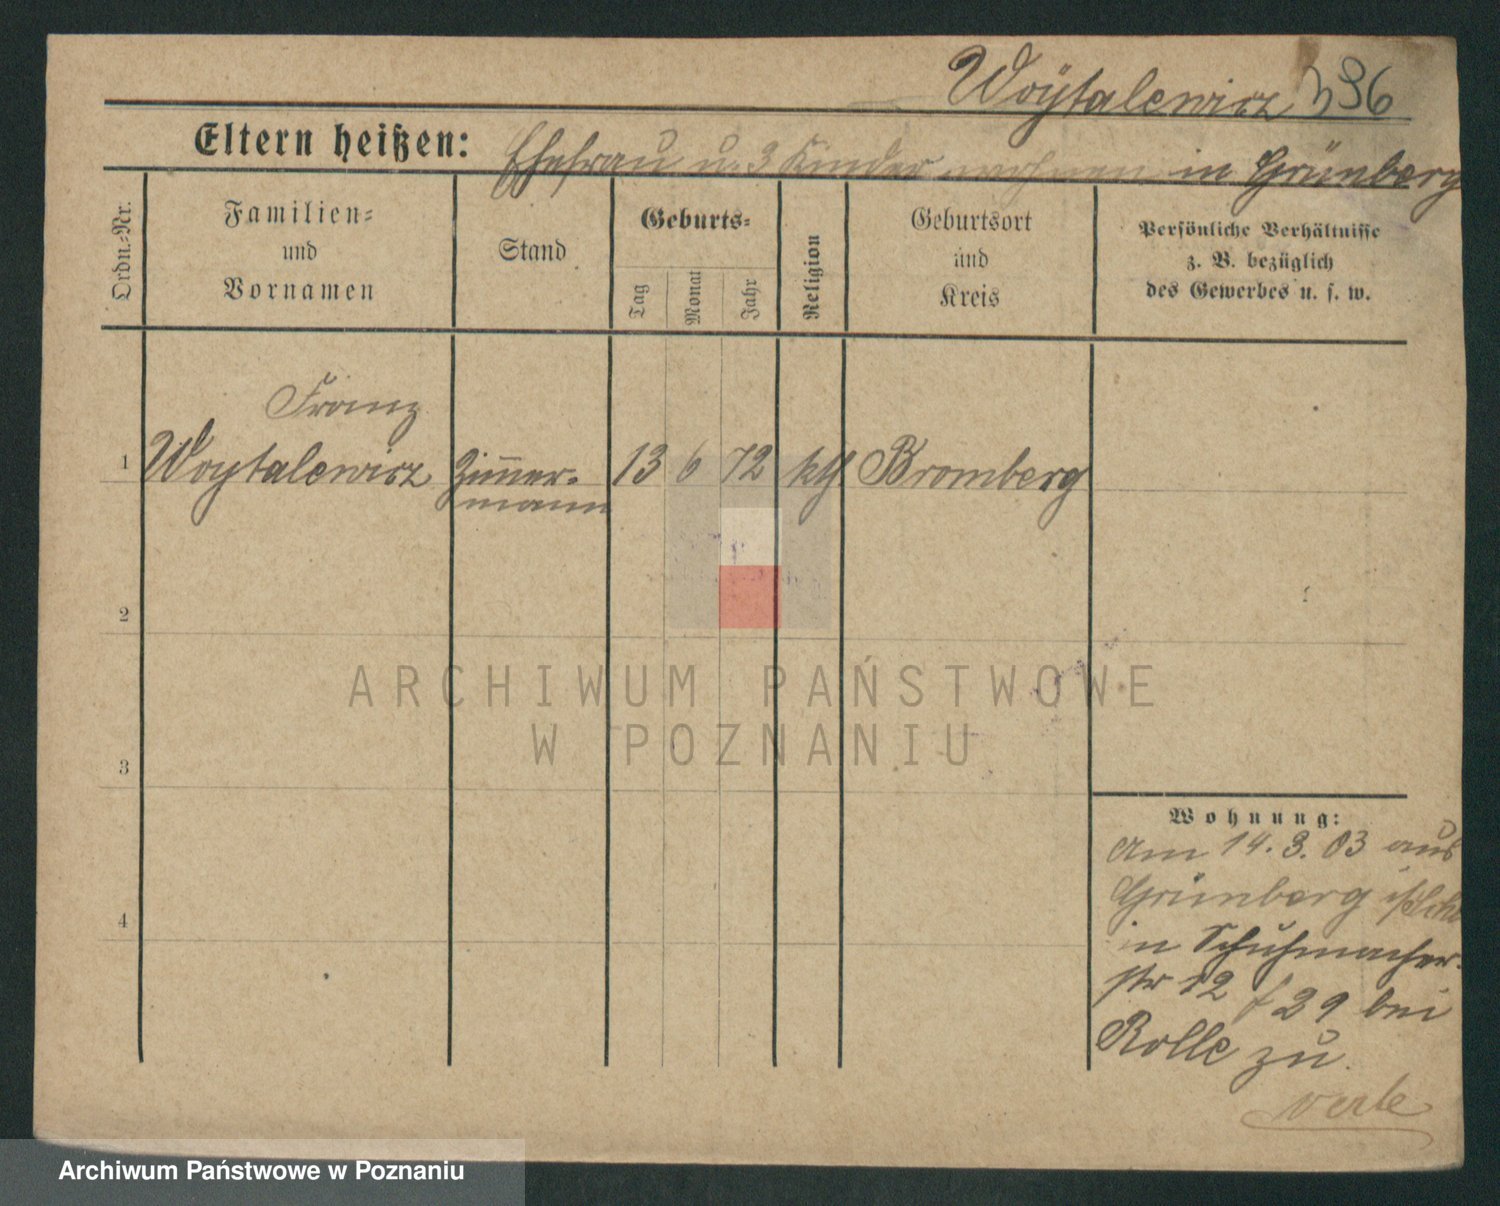 Woÿtalewicz 396
Eltern heißen: Ehefrau u. 3 Kinder wohnen in Grünberg
Ordn.-Nr.
Familien-
und
Vornamen
Stand
Geburts-
Tag
Monat
Jahr
Religion
Geburtsort
und
Kreis
Persönliche Verhältnisse
z. B. bezüglich
des Gewerbes u. s. w.
Franz
1 Woytalewicz Zimmer- 13 6 72 kth Bromberg
mann
2
3
4
Wohnung:
Am 14. 3. 03 aus
Grünberg
in Schuhmacher-
str 12 29 bei
Rolle zu.
ARCHIWUM PAŃSTWOWE
W POZNANIU
Archiwum Państwowe w Poznaniu